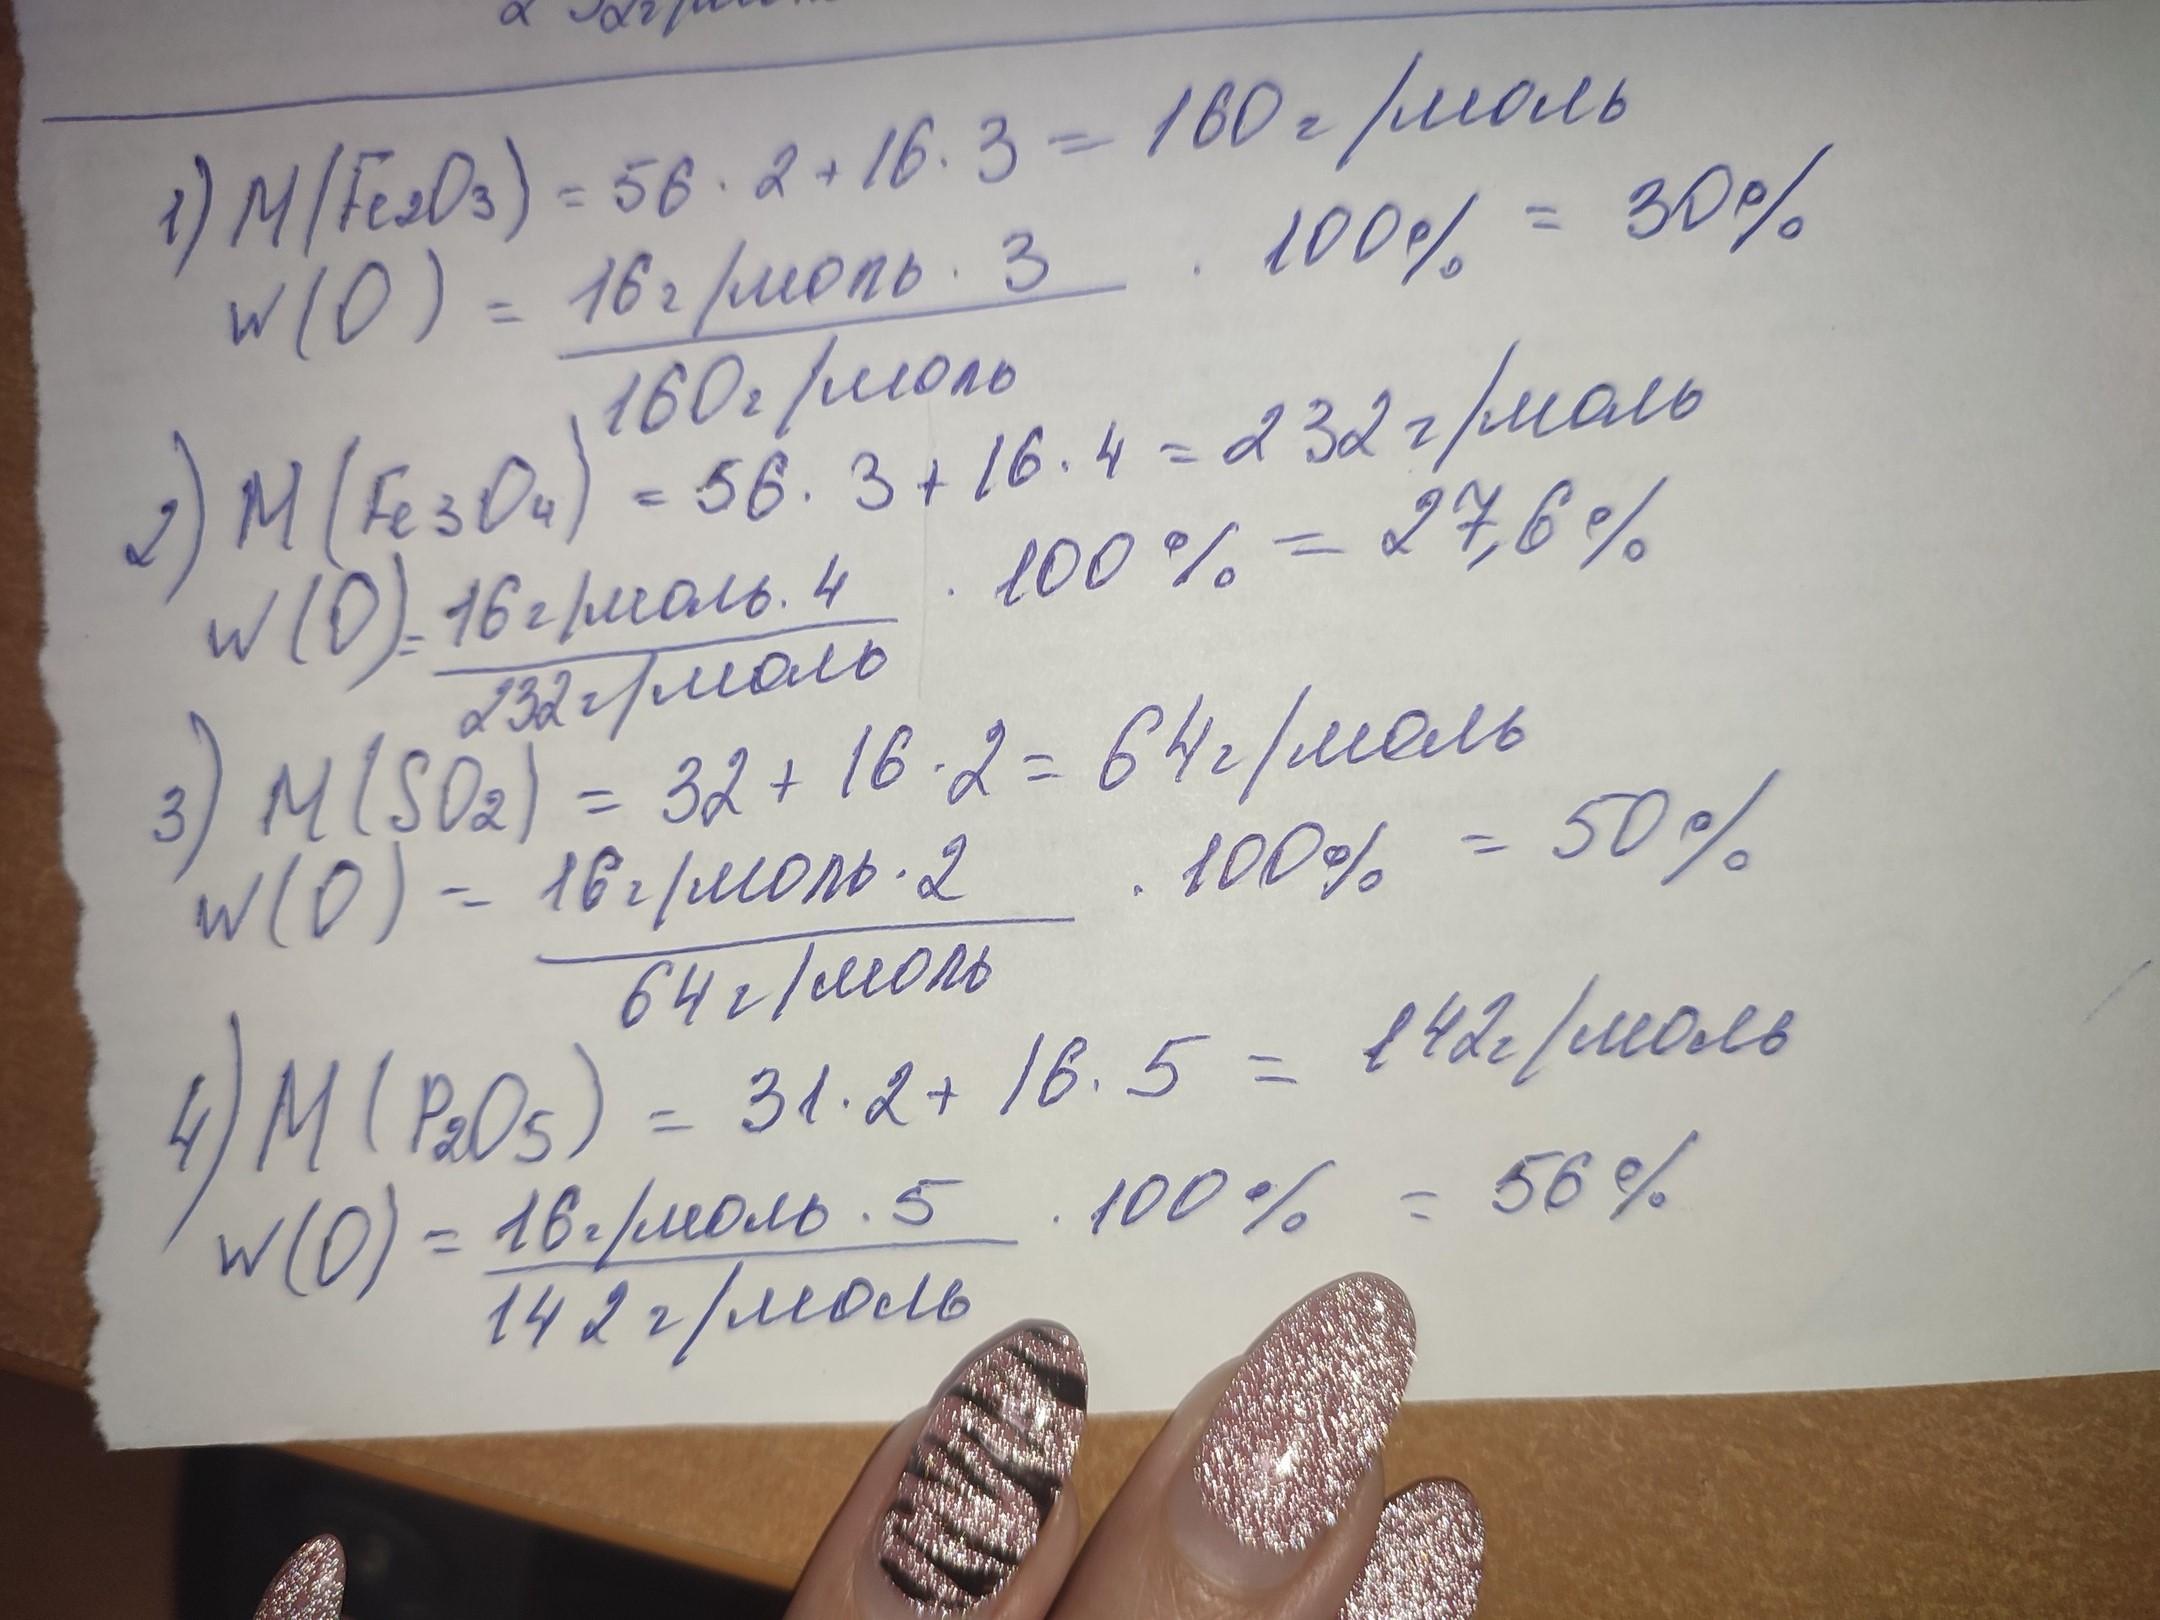 1) M(Fe2O3) = 56 · 2 + 16 · 3 = 160 г/моль
W(O) = 16 г/моль · 3 / 160 г/моль · 100% = 30%
2) M(Fe3O4) = 56 · 3 + 16 · 4 = 232 г/моль
W(O) = 16 г/моль · 4 / 232 г/моль · 100% = 27,6%
3) M(SO2) = 32 + 16 · 2 = 64 г/моль
W(O) = 16 г/моль · 2 / 64 г/моль · 100% = 50%
4) M(P2O5) = 31 · 2 + 16 · 5 = 142 г/моль
W(O) = 16 г/моль · 5 / 142 г/моль · 100% = 56%